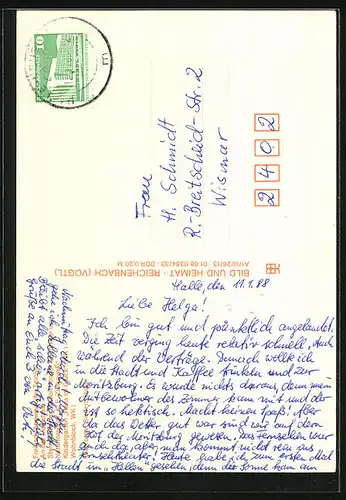 10
Frau
H. Schmidt
R.-Breitscheid-Str. 2
Wismar
2402
BILD UND HEIMAT · REICHENBACH (VOGTL)
A1/IV/26/13 01 08 0284/33 · DDR 0,20 M
Halle, den 11.1.88
Liebe Helga!
Ich bin gut und pünktlich angelandet.
Die Zeit verging heute relativ schnell, Auch
während der Vorträge. Danach wollte ich
in die Stadt und Kaffee trinken und zur
Moritzburg. Es wurde nichts daraus, denn mein
Mitbewohner des Zimmers kam mit und der
ist so hektisch. Macht keinen Spaß! Aber
da das Wetter gut war sind wir auf dem
Hof der Moritzburg gewesen. Das Fernsehen war
auch da, aber man kommt nicht rein als
Heute habe ich zum ersten Mal
die Stadt im "Hellen" gesehen, denn die Sonne kam am
Grüße an Euch 3 vom